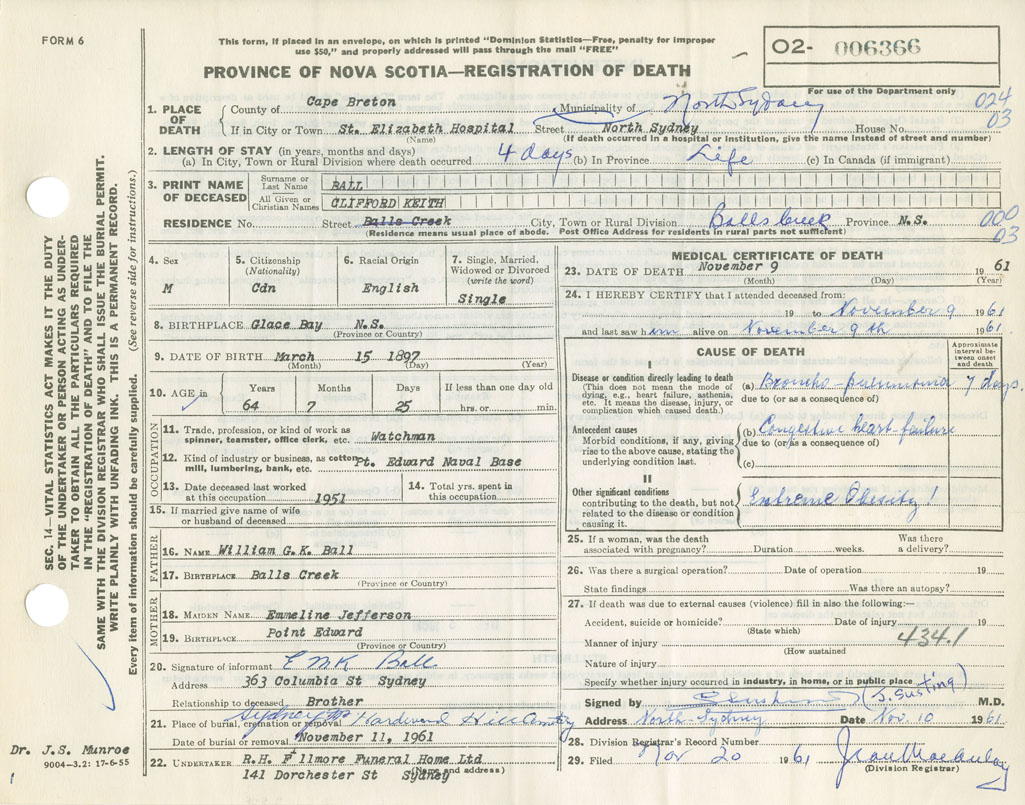 FORM 6
This form, if placed in an envelope, on which is printed "Dominion Statistics—Free, penalty for improper
use $50," and properly addressed will pass through the mail "FREE"
PROVINCE OF NOVA SCOTIA—REGISTRATION OF DEATH
O2- 006366
For use of the Department only
024
03
1. PLACE OF DEATH
County of Cape Breton Municipality of North Sydney
If in City or Town St. Elizabeth Hospital Street North Sydney House No.
(Name) (If death occurred in a hospital or institution, give the name instead of street and number)
2. LENGTH OF STAY (in years, months and days)
(a) In City, Town or Rural Division where death occurred 4 days (b) In Province Life (c) In Canada (if immigrant)
3. PRINT NAME OF DECEASED
Surname or Last Name BALL
All Given or Christian Names CLIFFORD KEITH
RESIDENCE No. Street Balls Creek City, Town or Rural Division Balls Creek Province N.S.
(Residence means usual place of abode. Post Office Address for residents in rural parts not sufficient)
000
03
4. Sex
M
5. Citizenship
(Nationality)
Cdn
6. Racial Origin
English
7. Single, Married,
Widowed or Divorced
(write the word)
Single
8. BIRTHPLACE Glace Bay N.S.
(Province or Country)
9. DATE OF BIRTH March 15 1897
(Month) (Day) (Year)
10. AGE in
Years Months Days If less than one day old
64 7 25 hrs. or min.
OCCUPATION
11. Trade, profession, or kind of work as
spinner, teamster, office clerk, etc. Watchman
12. Kind of industry or business, as cotton
mill, lumbering, bank, etc. Pt. Edward Naval Base
13. Date deceased last worked
at this occupation 1951
14. Total yrs. spent in
this occupation
15. If married give name of wife
or husband of deceased
FATHER
16. NAME William G.K. Ball
17. BIRTHPLACE Balls Creek
(Province or Country)
MOTHER
18. MAIDEN NAME Emmeline Jefferson
19. BIRTHPLACE Point Edward
(Province or Country)
20. Signature of informant E M K Ball
Address 363 Columbia St Sydney
Relationship to deceased Brother
21. Place of burial, cremation or removal Sydney Hardwood Hill Cemetry
Date of burial or removal November 11, 1961
22. UNDERTAKER R.H. Fillmore Funeral Home Ltd
141 Dorchester St Sydney
(Name and address)
MEDICAL CERTIFICATE OF DEATH
23. DATE OF DEATH November 9 1961
(Month) (Day) (Year)
24. I HEREBY CERTIFY that I attended deceased from:
19 to November 9 1961
and last saw him alive on November 9th 1961
CAUSE OF DEATH
Approximate
interval be-
tween onset
and death
I
Disease or condition directly leading to death
(This does not mean the mode of
dying, e.g., heart failure, asthenia,
etc. It means the disease, injury, or
complication which caused death.)
(a) Broncho-pneumonia 7 days.
due to (or as a consequence of)
Antecedent causes
Morbid conditions, if any, giving
rise to the above cause, stating the
underlying condition last.
(b) Congestive heart-failure
due to (or as a consequence of)
(c)
II
Other significant conditions
contributing to the death, but not
related to the disease or condition
causing it.
Extreme Obesity!
25. If a woman, was the death
associated with pregnancy? Duration weeks. Was there
a delivery?
26. Was there a surgical operation? Date of operation 19
State findings Was there an autopsy?
27. If death was due to external causes (violence) fill in also the following:—
Accident, suicide or homicide? Date of injury 19
(State which)
Manner of injury 434.1
(How sustained
Nature of injury
Specify whether injury occurred in industry, in home, or in public place
Signed by (J. Susting) M.D.
Address North-Sydney Date Nov. 10 1961
28. Division Registrar's Record Number
29. Filed Nov 20 1961 Jean MacAulay
(Division Registrar)
SEC. 14—VITAL STATISTICS ACT MAKES IT THE DUTY
OF THE UNDERTAKER OR PERSON ACTING AS UNDER-
TAKER TO OBTAIN ALL THE PARTICULARS REQUIRED
IN THE "REGISTRATION OF DEATH" AND TO FILE THE
SAME WITH THE DIVISION REGISTRAR WHO SHALL ISSUE THE BURIAL PERMIT.
WRITE PLAINLY WITH UNFADING INK. THIS IS A PERMANENT RECORD.
Every item of information should be carefully supplied. (See reverse side for instructions.)
Dr. J.S. Munroe
9004-3.2: 17-6-55